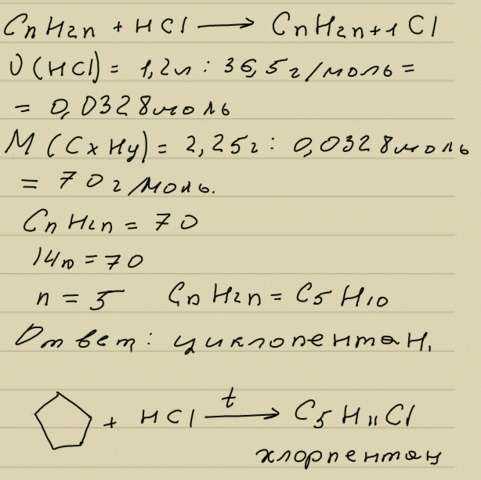 CnH2n + HCl → CnH2n+1Cl
υ(HCl) = 1,2л : 36,5г/моль =
= 0,0328моль
M(CxHy) = 2,25г : 0,0328моль
= 70г/моль.
CnH2n = 70
14n = 70
n = 5 CnH2n = C5H10
Ответ: циклопентан,
+ HCl t → C5H11Cl
хлорпентан